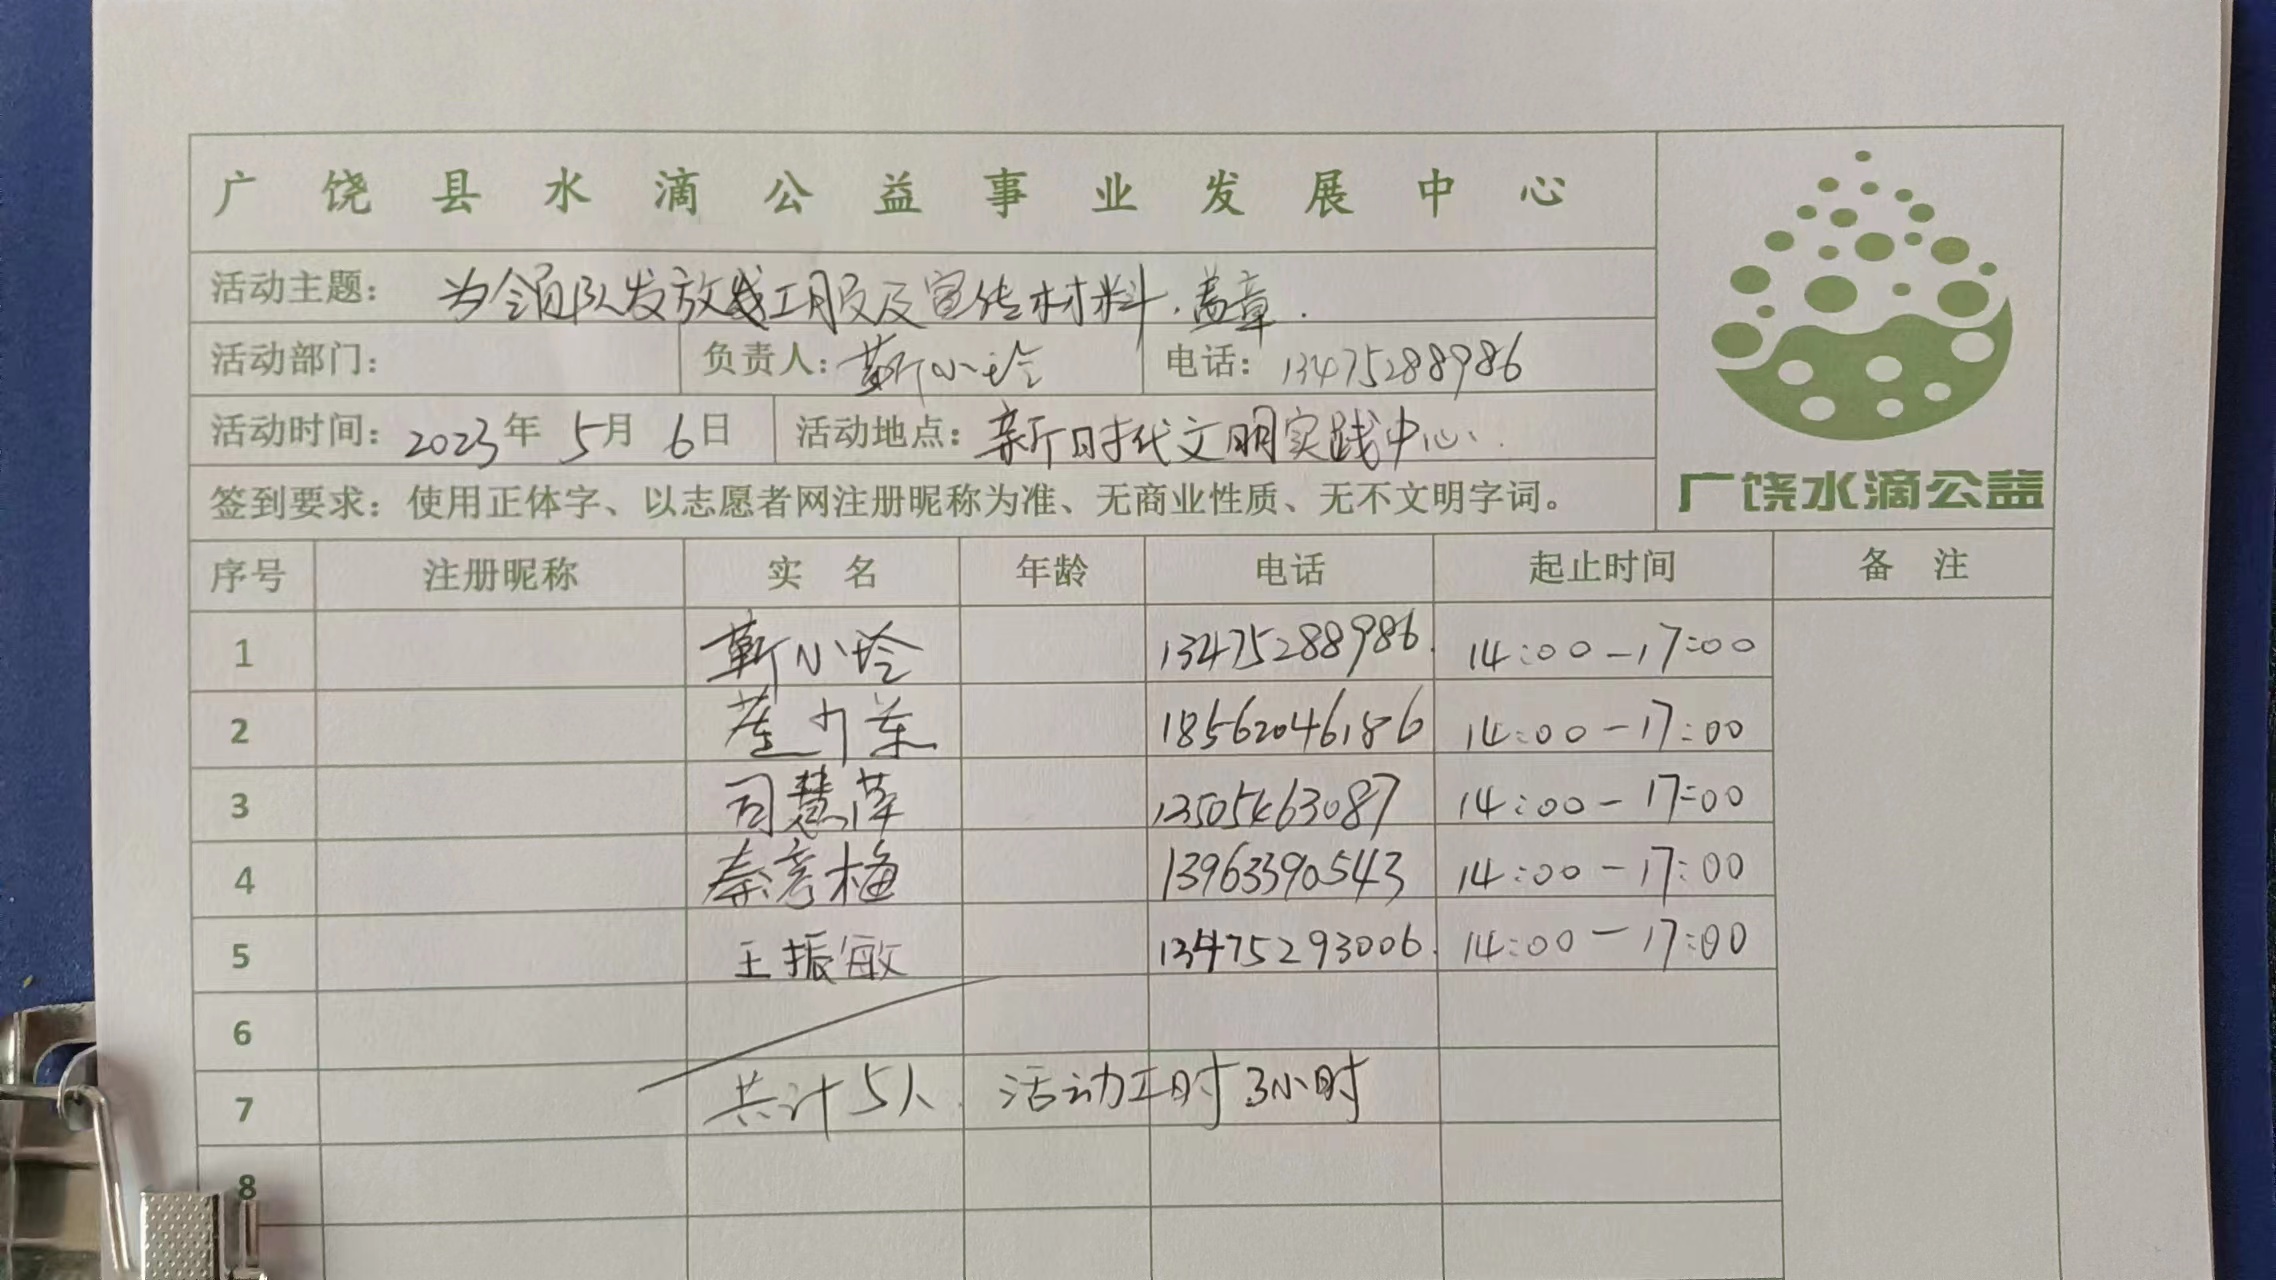 广饶县水滴公益事业发展中心
活动主题: 为领队发放义工服及宣传材料.盖章.
活动部门: 负责人: 靳小玲 电话: 13475288986
活动时间: 2023年 5月 6日 活动地点: 新时代文明实践中心.
签到要求: 使用正体字、以志愿者网注册昵称为准、无商业性质、无不文明字词。
广饶水滴公益
序号 注册昵称 实 名 年龄 电话 起止时间 备 注
1 靳小玲 13475288986. 14:00-17:00
2 18562046186 14:00-17:00
3 司慧萍 13505463087 14:00-17:00
4 秦彦梅 13963390543 14:00-17:00
5 王振敏 13475293006. 14:00-17:00
6
7 共计5人. 活动工时3小时
8